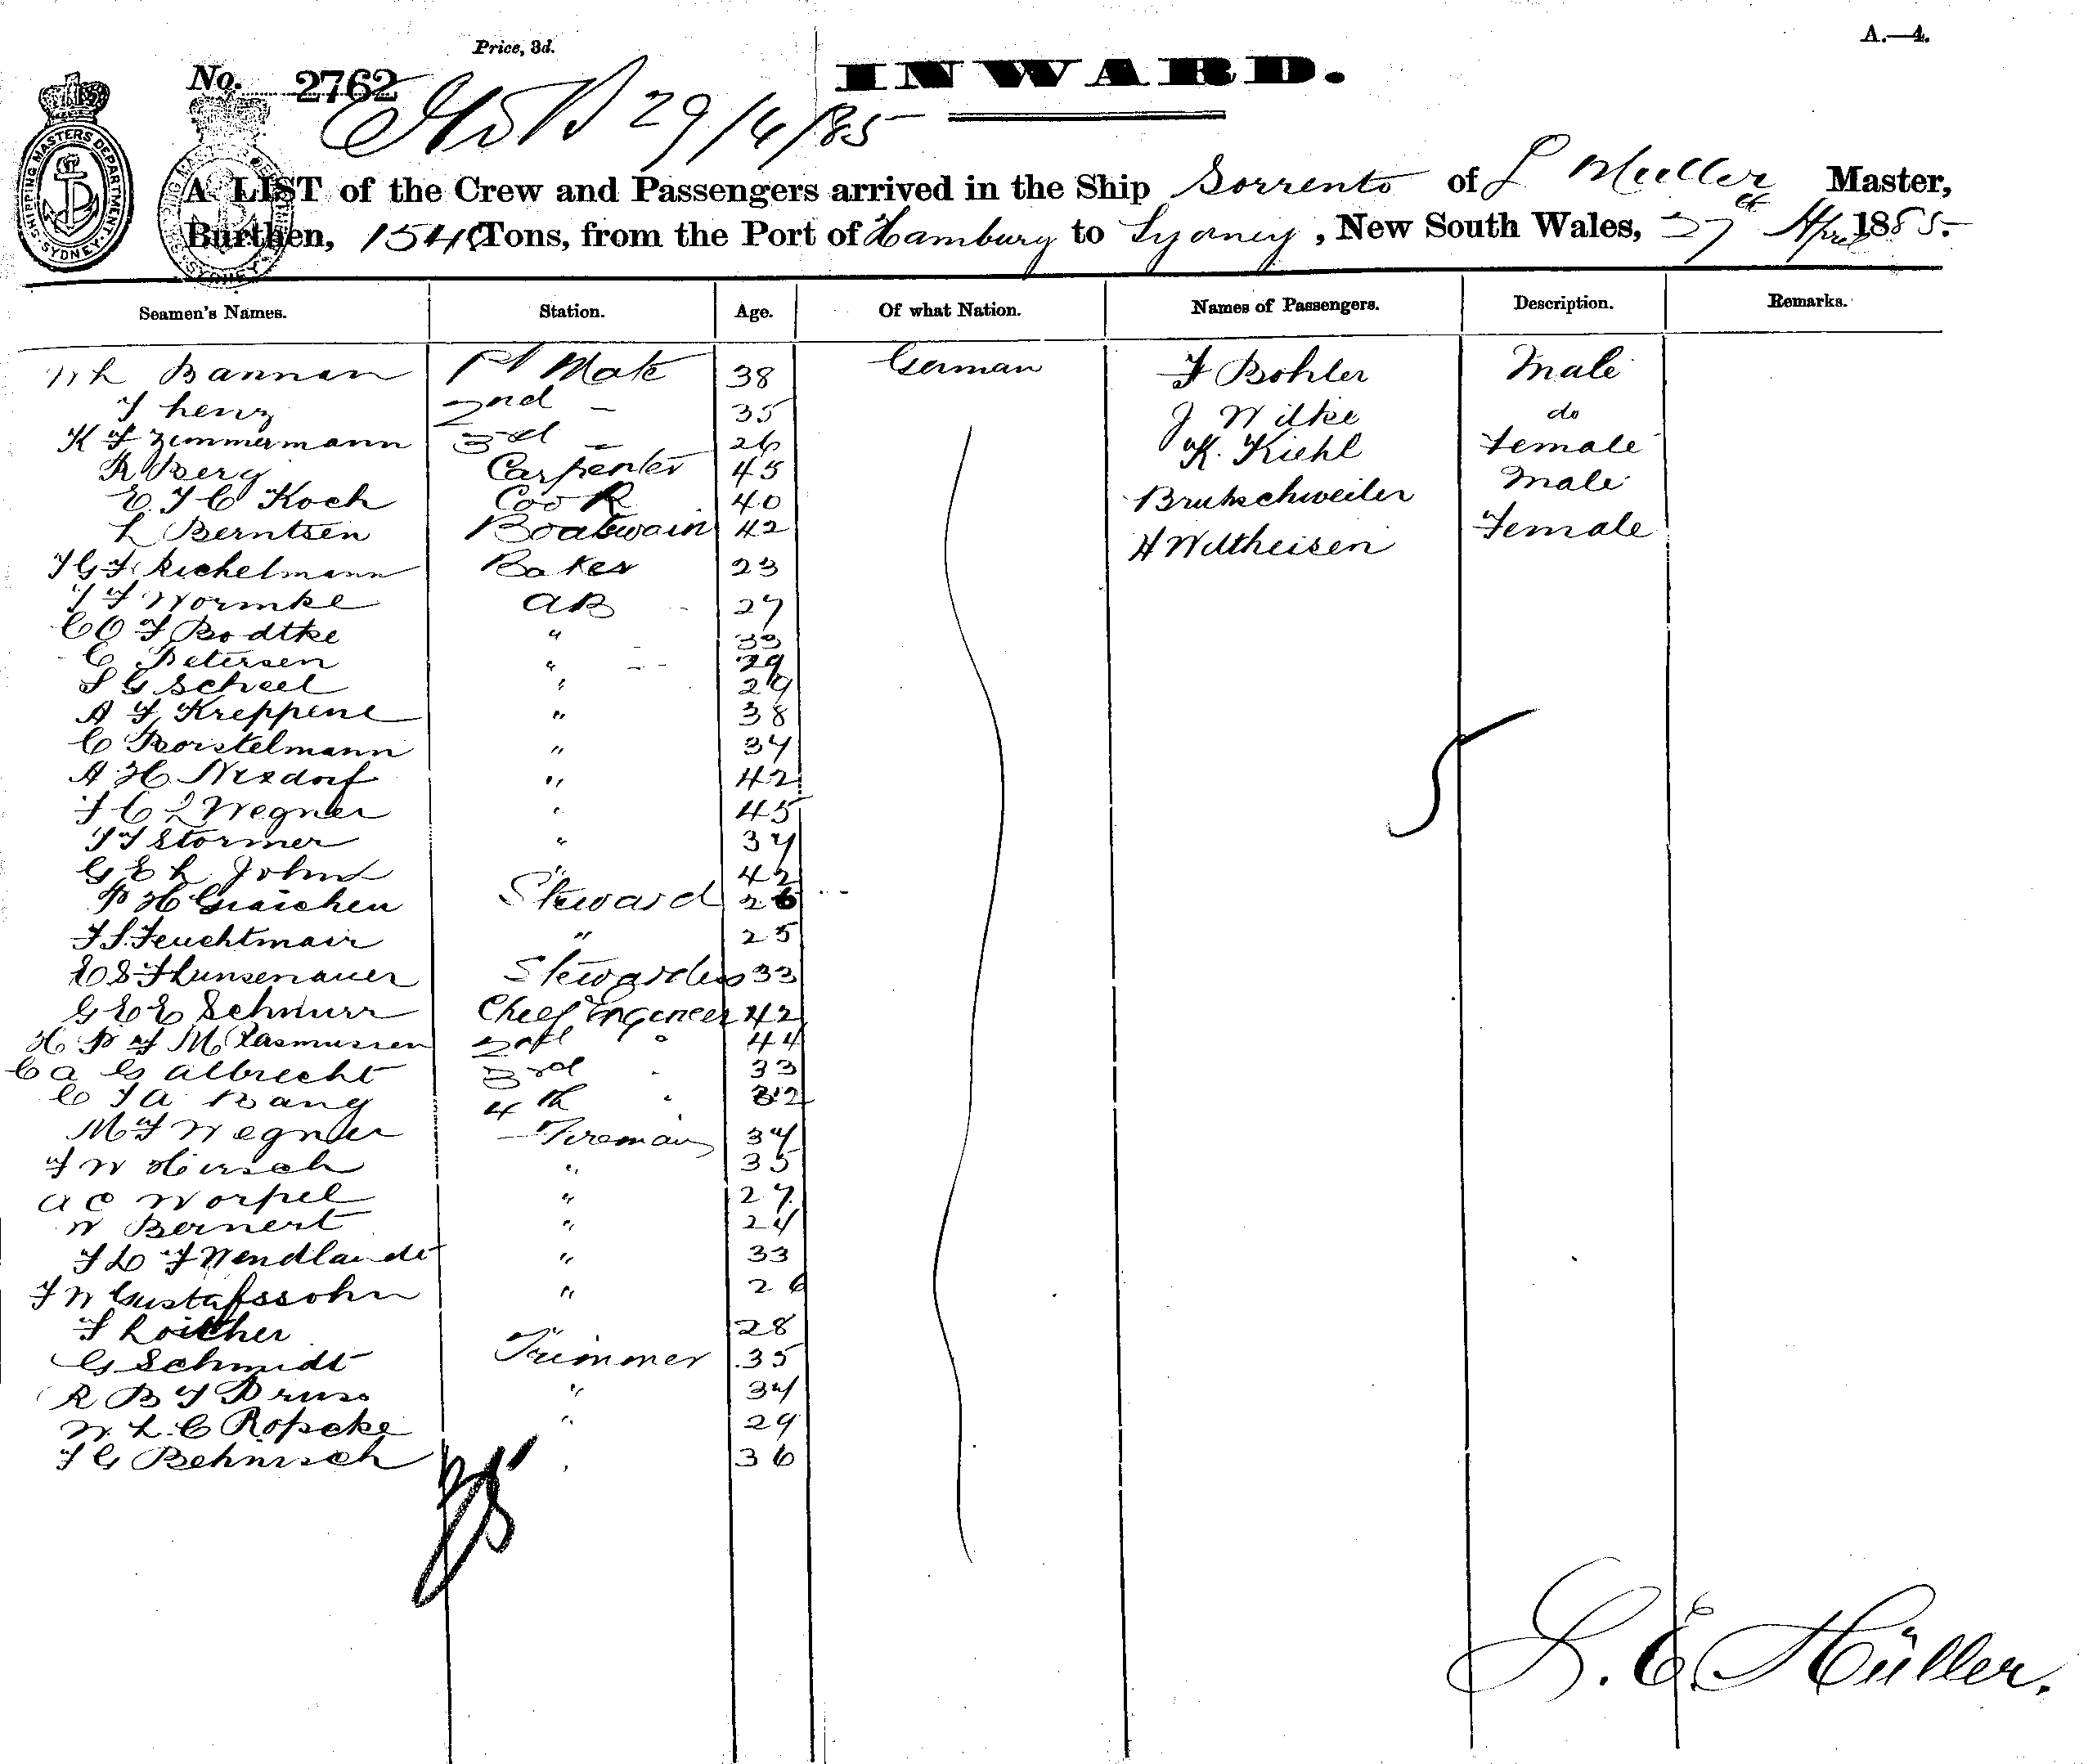 A.—4.
Price, 3d.
No. 2762
INWARD.
29/4/85
SHIPPING MASTERS DEPARTMENT SYDNEY
A LIST of the Crew and Passengers arrived in the Ship Sorrento of L Muller Master,
Burthen, 1540 Tons, from the Port of Hamburg to Sydney, New South Wales, 27th April 1885.
Seamen's Names. Station. Age. Of what Nation. Names of Passengers. Description. Remarks.
Bannan 1st Mate 38 German F Bohler Male
2nd - 35 J Wilke do
K F Zimmermann 3rd - 26 K. Kiehl Female
R Berg Carpenter 45 Male
E. J C Koch Cook 40 Brutschweiler
L Berntsen Boatswain 42 H Wiltheisen Female
J G F Richelmann Baker 23
J F Wormke AB 27
C O F Bodtke " 33
C Petersen " 29
S G Scheel " 29
A F Kreppene " 38
C Borstelmann " 34
A H Nixdorf " 42
F C L Wegner " 45
J F Stormer " 34
G E L John " 42
P H Graichen Steward 26
F S. Feuchtmair " 25
Stewardess 33
G E E Schnurr Chief Engineer 42
H P F M Rasmussen 2nd " 44
C A G Albrecht 3rd " 33
C J A Bang 4th " 32
M F Wegner Fireman 34
F W Hirsch " 35
A C Worpel " 27
W Bernert " 24
Wendlandt " 33
F W Gustafssohn " 26
F Loitcher " 28
G Schmidt Trimmer 35
R B F Druse " 34
W. L. C Ropcke " 29
F G Behnisch " 36
35
5
L. E. Müller.